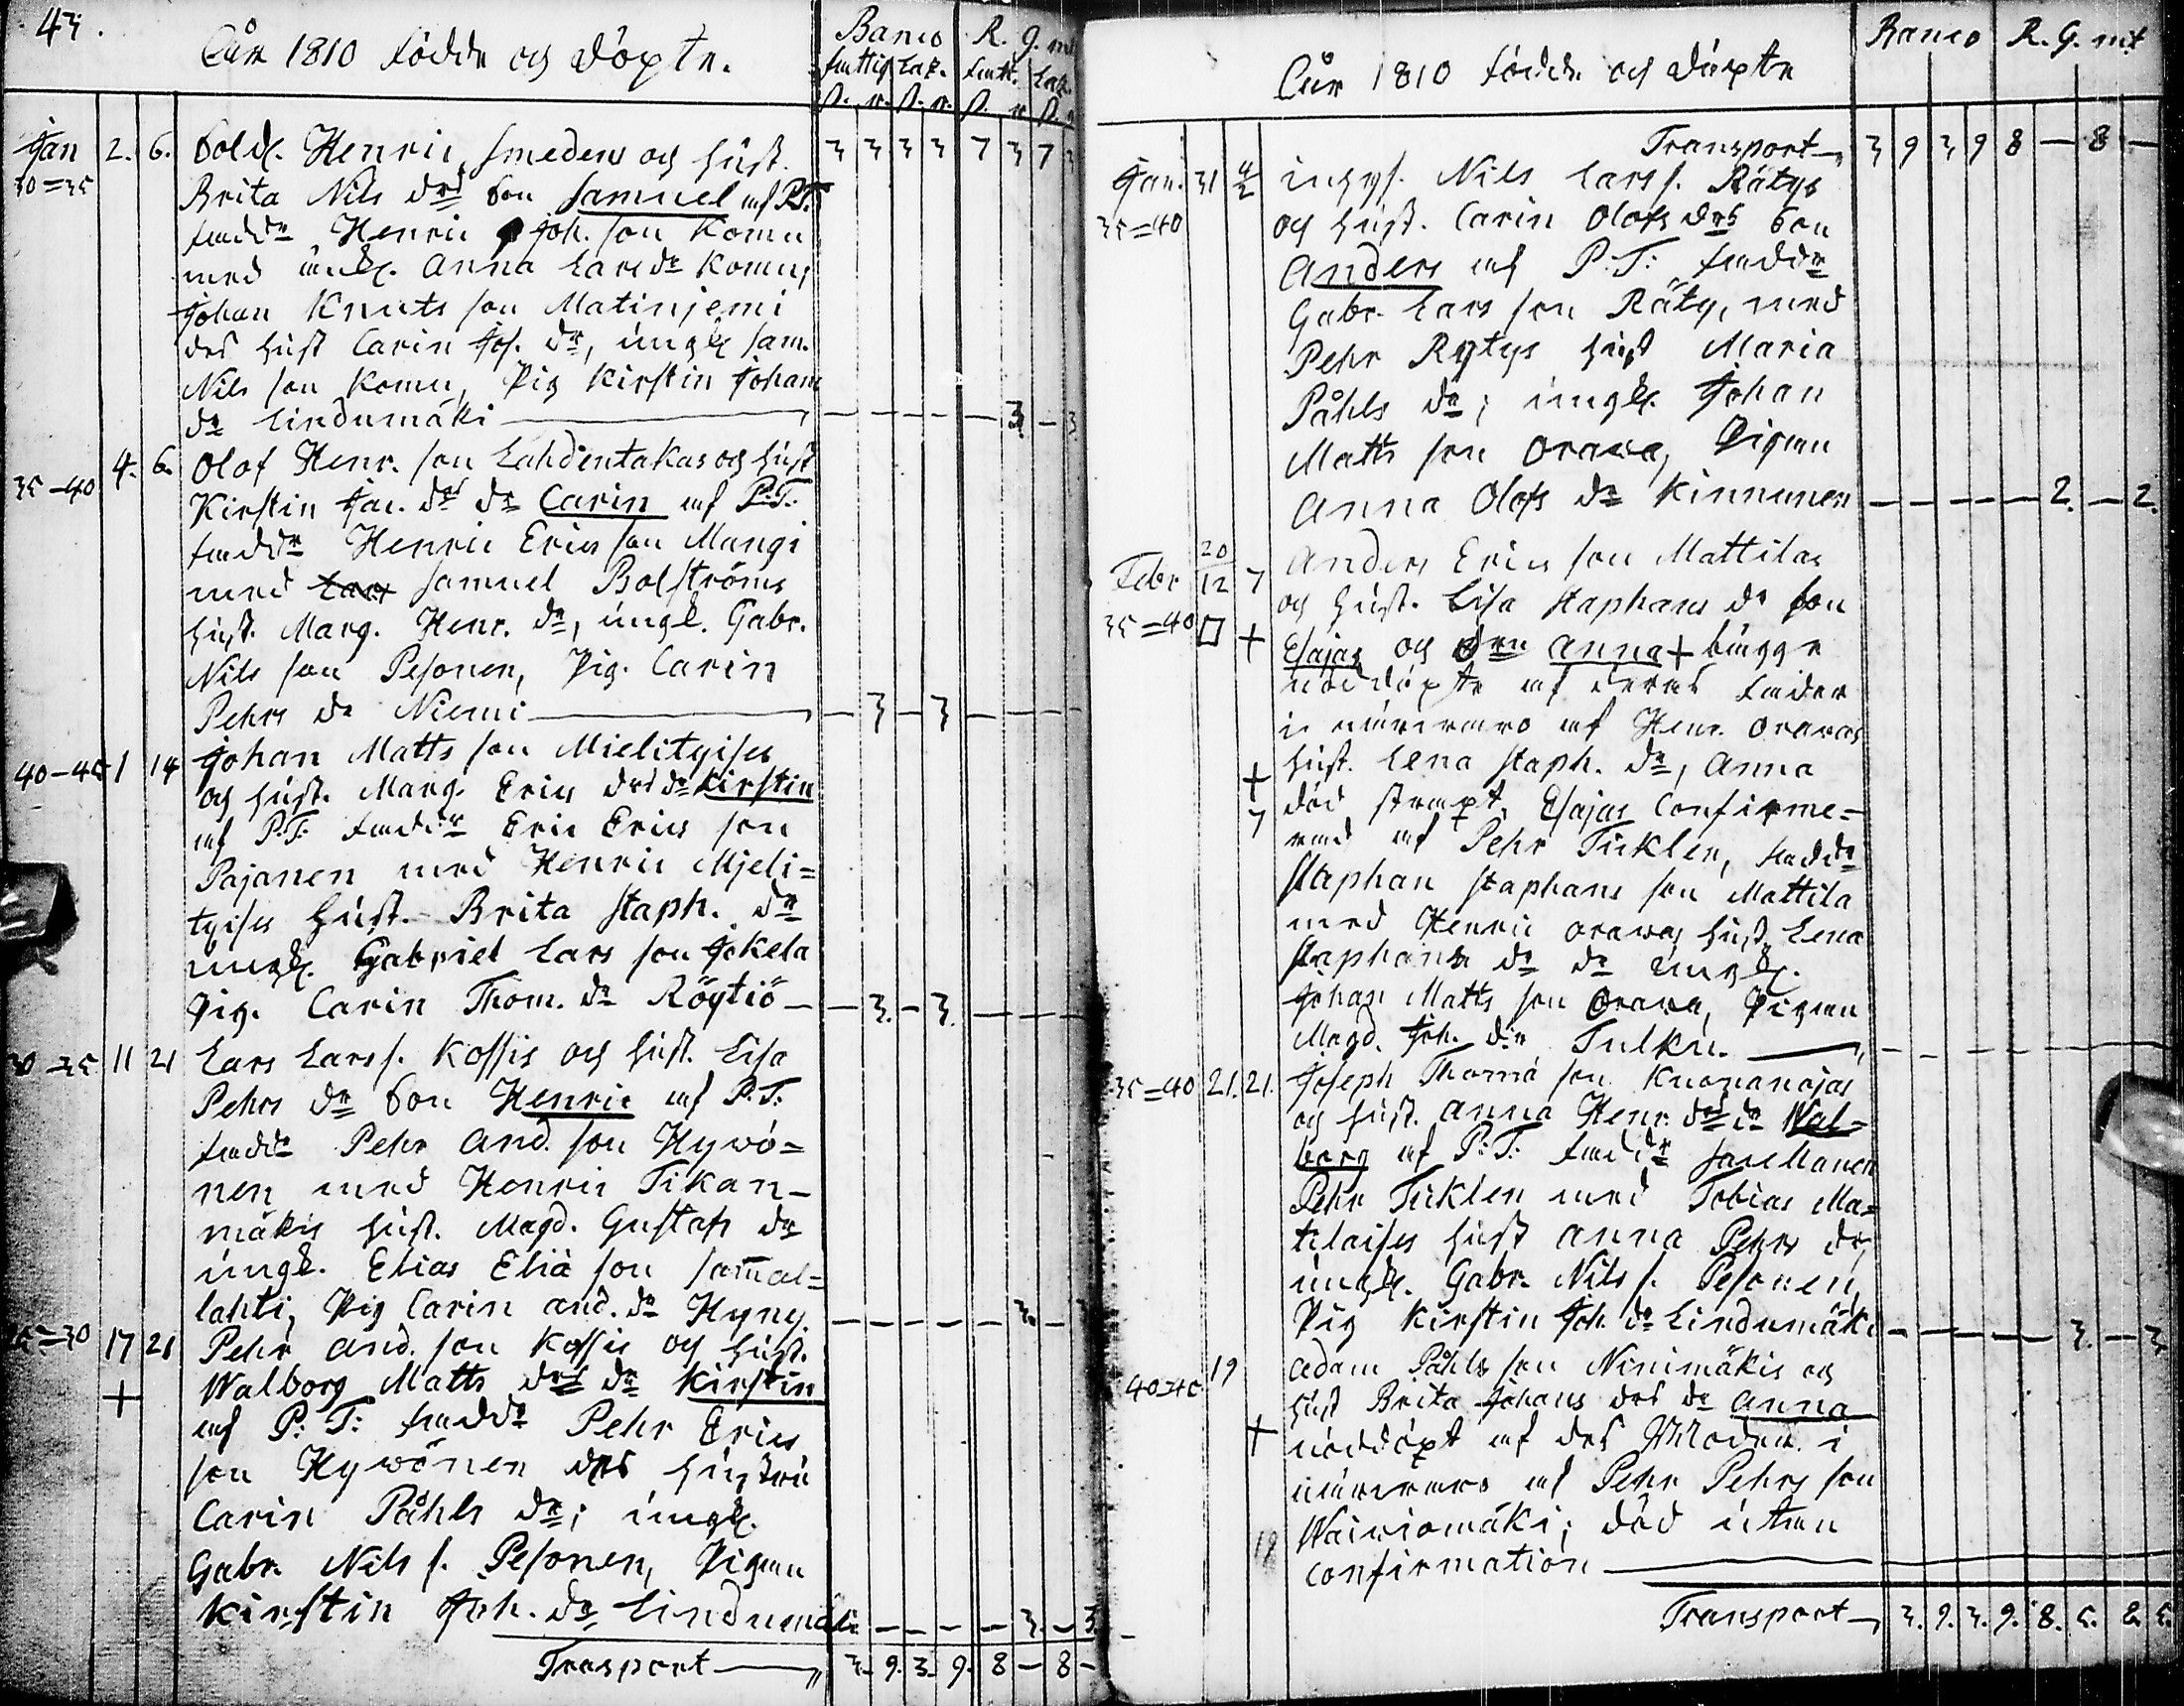 43.
Åhr 1810 födde och döpte.
Banco R. G. mt
fattig kaß. fatt. kaß.
ß. r. ß. r. ß. r. ß. r
Jan 2. 6. Sold. Henric Smedens och hust. 3 3 3 3 7 3 7 3
30=35 Brita Nils drs Son Samuel af P.T.
fadd. Henric Joh. son Komu
med ungk. Anna Lars dr Komu,
Johan Knuts son Matinjemi
des hust Carin Jos. dr, ungk Sam.
Nils son Komu, Pig Kirstin Johans
dr Lindumäki — — — — — 3. — 3.
35-40 4. 6. Olof Henr. son Lahdentakas och hust
Kirstin Jac. drs dr Carin af P.T.
fadd. Henric Erics son Mangi
med Lars Samuel Bolströms
hust. Marg. Henr. dr, ungk. Gabr.
Nils son Pesonen, Pig. Carin
Pehrs dr Niemi — — 3 — 3 — — — —
40-45 1 14 Johan Matts son Mielityises
och hust. Marg. Erics drs dr Kirstin
af P.T. fadd. Eric Erics son
Pajanen med Henric Mjeli=
tyises Hust. Brita Staph. dr
ungk. Gabriel Lars son Jokela
pig. Carin Thom. dr Röytiö — — 3. — 3. — — — —
30-35 11 21 Lars Larss. Kossis och hust. Lisa
Pehrs dr Son Henric af P.T.
fadd. Pehr And. son Hywö=
nen med Henric Tikan-
mäkis hust. Magd. Gustafs dr
ungk. Elias Eliä son Samal=
lahti, Pig Carin And. dr Hyny. — — — — — 3. —
25=30 17 21 Pehr And. son Kossis och hust.
+ Walborg Matts drs dr Kirstin
af P: T: fadd. Pehr Erics
son Hywönen des hustru
Carin Påhls dr; ungk.
Gabr. Nils s. Pesonen, Pigan
Kirstin Joh. dr Lindumäki — — — — 3. — 3.
Trasport — 3. 9. 3. 9. 8 — 8 —
Åhr 1810 födde och döpte
Banco R. G. mt
Transport 3 9 3 9 8 — 8 —
Jan. 31 4/2 inhys. Nils Larss. Rätys
35=40 och hust. Carin Olofs drs Son
Anders af P.T: fadd.
Gabr. Lars son Räty, med
Pehr Rytys hust Maria
Påhls dr; ungk. Johan
Matts son Orawa, Pigan
Anna Olofs dr Kinnunen — — — — — 2. — 2.
Febr 20/12 7 Anders Erics son Mattilas
och hust. Lisa Staphans dr Son
35=40 □ + Esajas och dren Anna + bägge
nöddöpte af deras fader
i närwaro af Henr. Orawas
+ hust. Lena Staph. dr, Anna
7 död straxt, Esajas confirme-
rad af Pehr Ticklen, fadd.
Staphan Staphans son Mattila
med Henric Orawas hust Lena
Staphans dr dr ungk.
Johan Matts son Orawa, Pigan
Magd. Joh. dr Tulku. — — — — — — — —
35=40 21. 21. Joseph Thomä son Knonanojas
och hust. Anna Henr. drs dr Wal-
borg af P:T: fadd. Sacellanen
Pehr Ticklen med Tobias Ma=
tilaises hust Anna Pehrs dr,
ungk. Gabr. Nils s. Pesonen,
Pig Kirstin Joh. dr Lindumäki — — — — — 3. — 3.
40=45 19 Adam Påhls son Ninimäkis och
hust Brita Johans drs dr Anna
+ nöddöpt af des Moder i
närwaro af Pehr Pehrs son
18 Wairiomäki; död utan
confirmation
Transport — 3. 9. 3. 9. 8. 5. 8. 5.